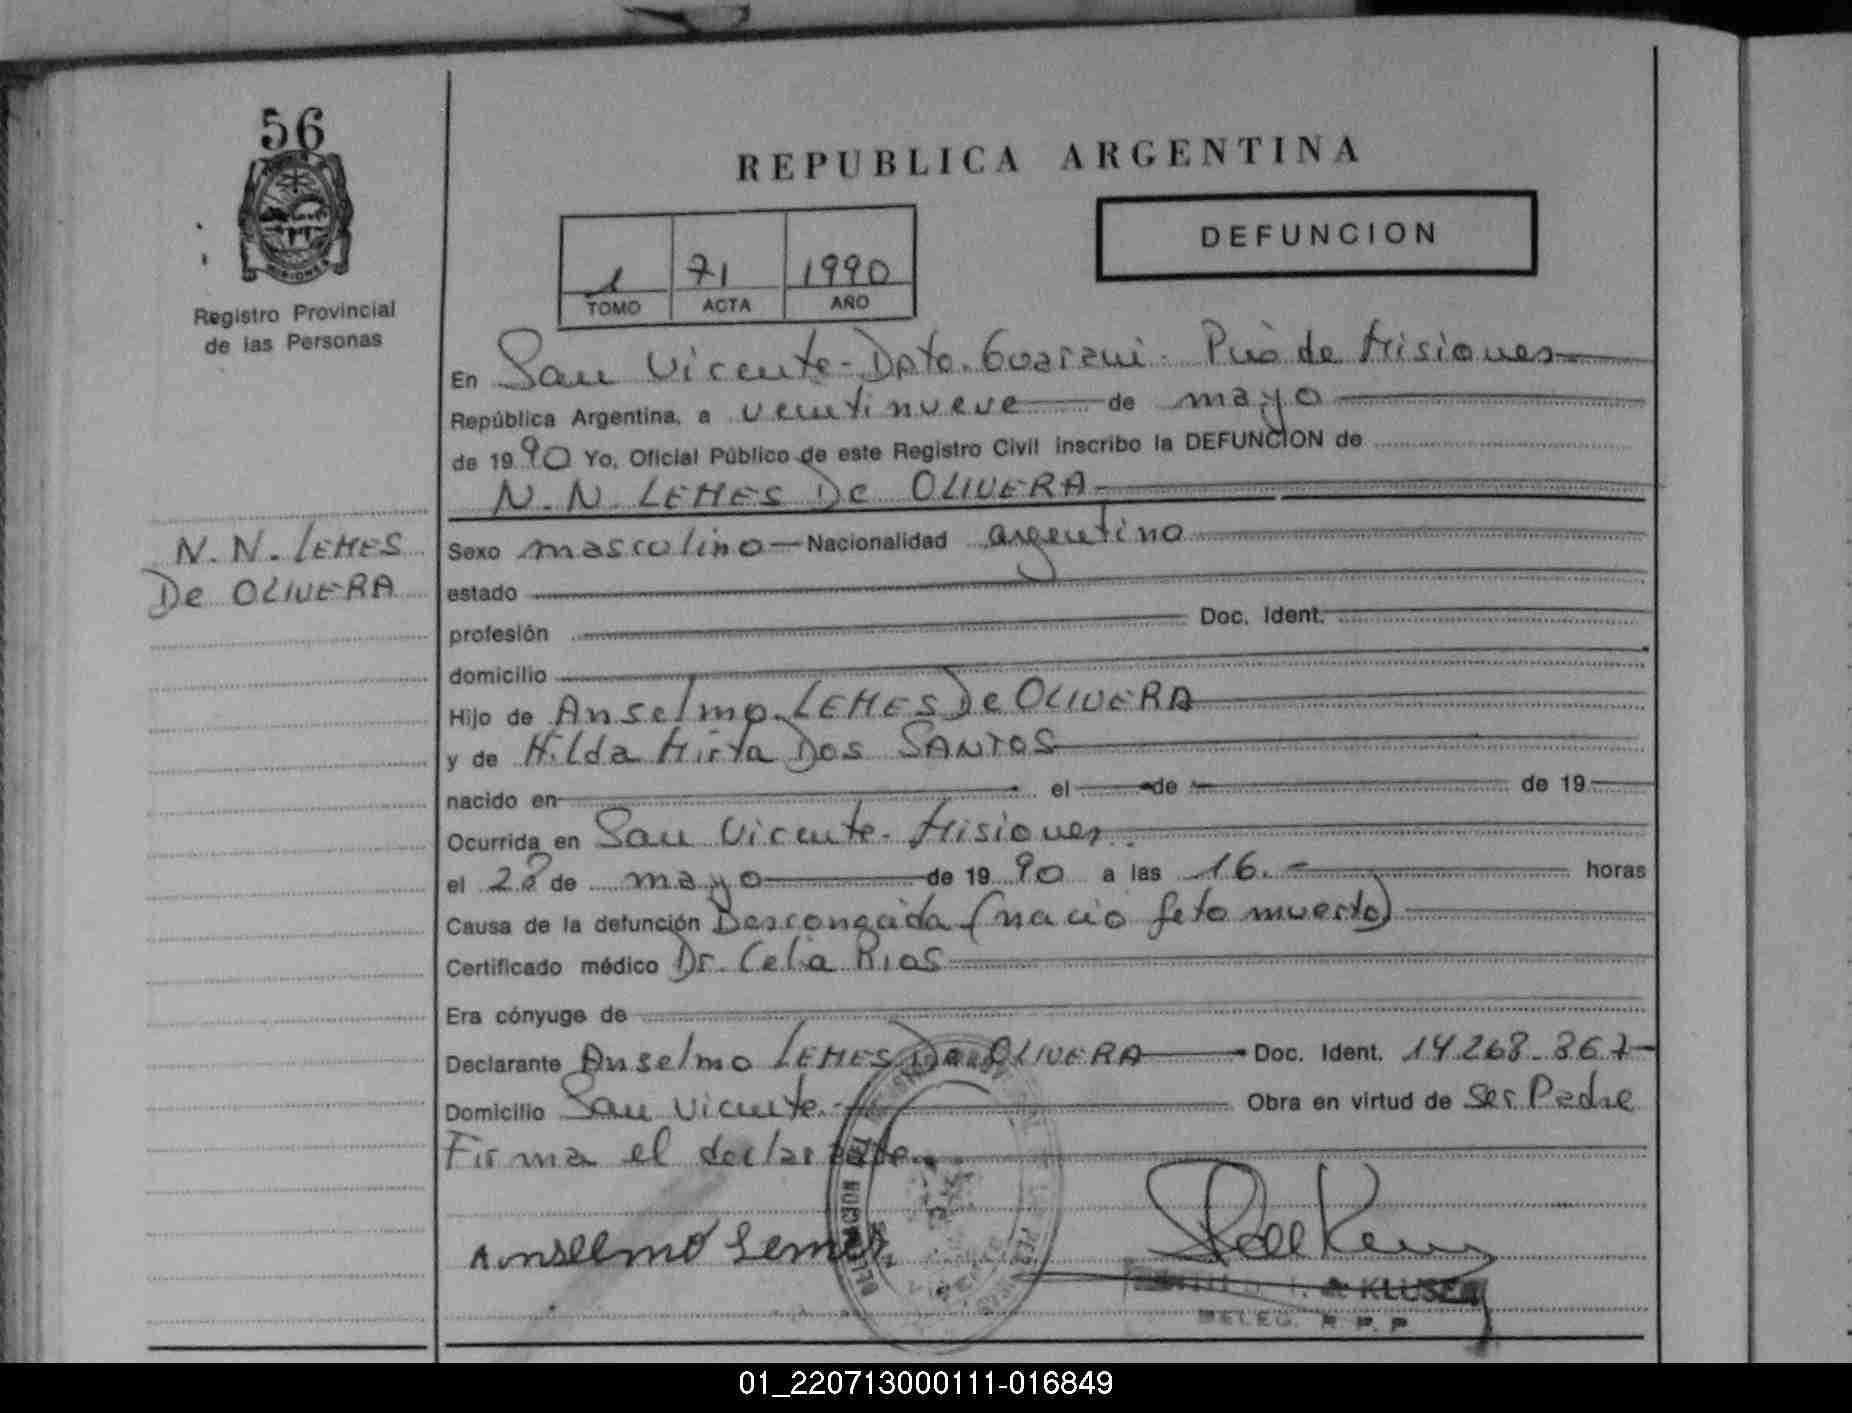 56
MISIONES
Registro Provincial
de las Personas
REPUBLICA ARGENTINA
DEFUNCION
1 71 1990
TOMO ACTA AÑO
En San Vicente - Dpto. Guaraní. Pcia de Misiones
República Argentina, a veintinueve de mayo
de 1990 Yo, Oficial Público de este Registro Civil inscribo la DEFUNCION de
N. N. LEMES De OLIVERA
N. N. LEMES
De OLIVERA
Sexo masculino - Nacionalidad argentino
estado
profesión Doc. Ident.
domicilio
Hijo de Anselmo LEMES De OLIVERA
y de Hilda Mirta Dos SANTOS
nacido en el de de 19
Ocurrida en San Vicente - Misiones.
el 28 de mayo de 1990 a las 16.- horas
Causa de la defunción Desconocida (nacio feto muerto)
Certificado médico Dr. Celia Rios
Era cónyuge de
Declarante Anselmo LEMES De OLIVERA Doc. Ident. 14.268.867
Domicilio San Vicente. Obra en virtud de ser Padre
Firma el declarante.
Anselmo Lemes
KLUSER
DELEG. R. P. P.
01_220713000111-016849